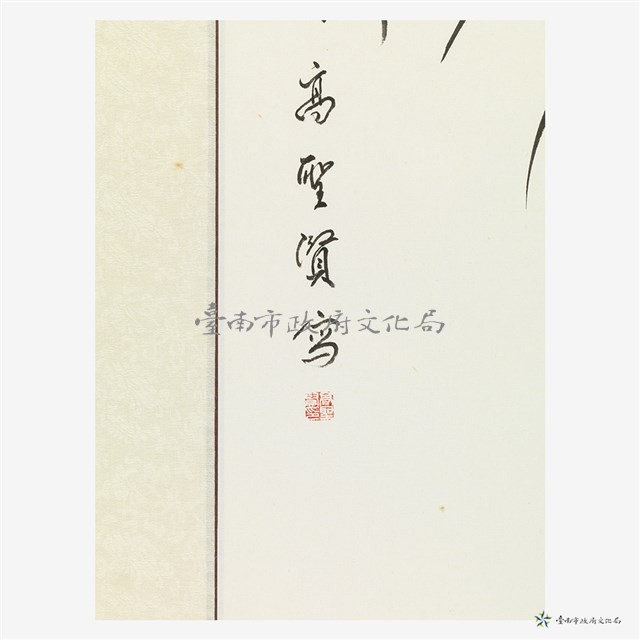 高聖賢寫
臺南市政府文化局
臺南市政府文化局